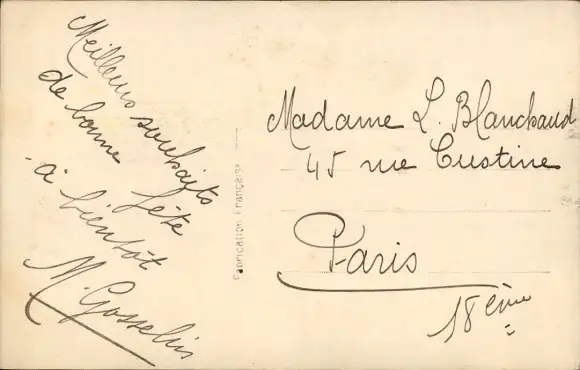 Meilleurs souhaits
de bonne fête
à bientôt
M. Gosselin
Fabrication Française
Madame L. Blanchaud
45 rue Custine
Paris
18ème